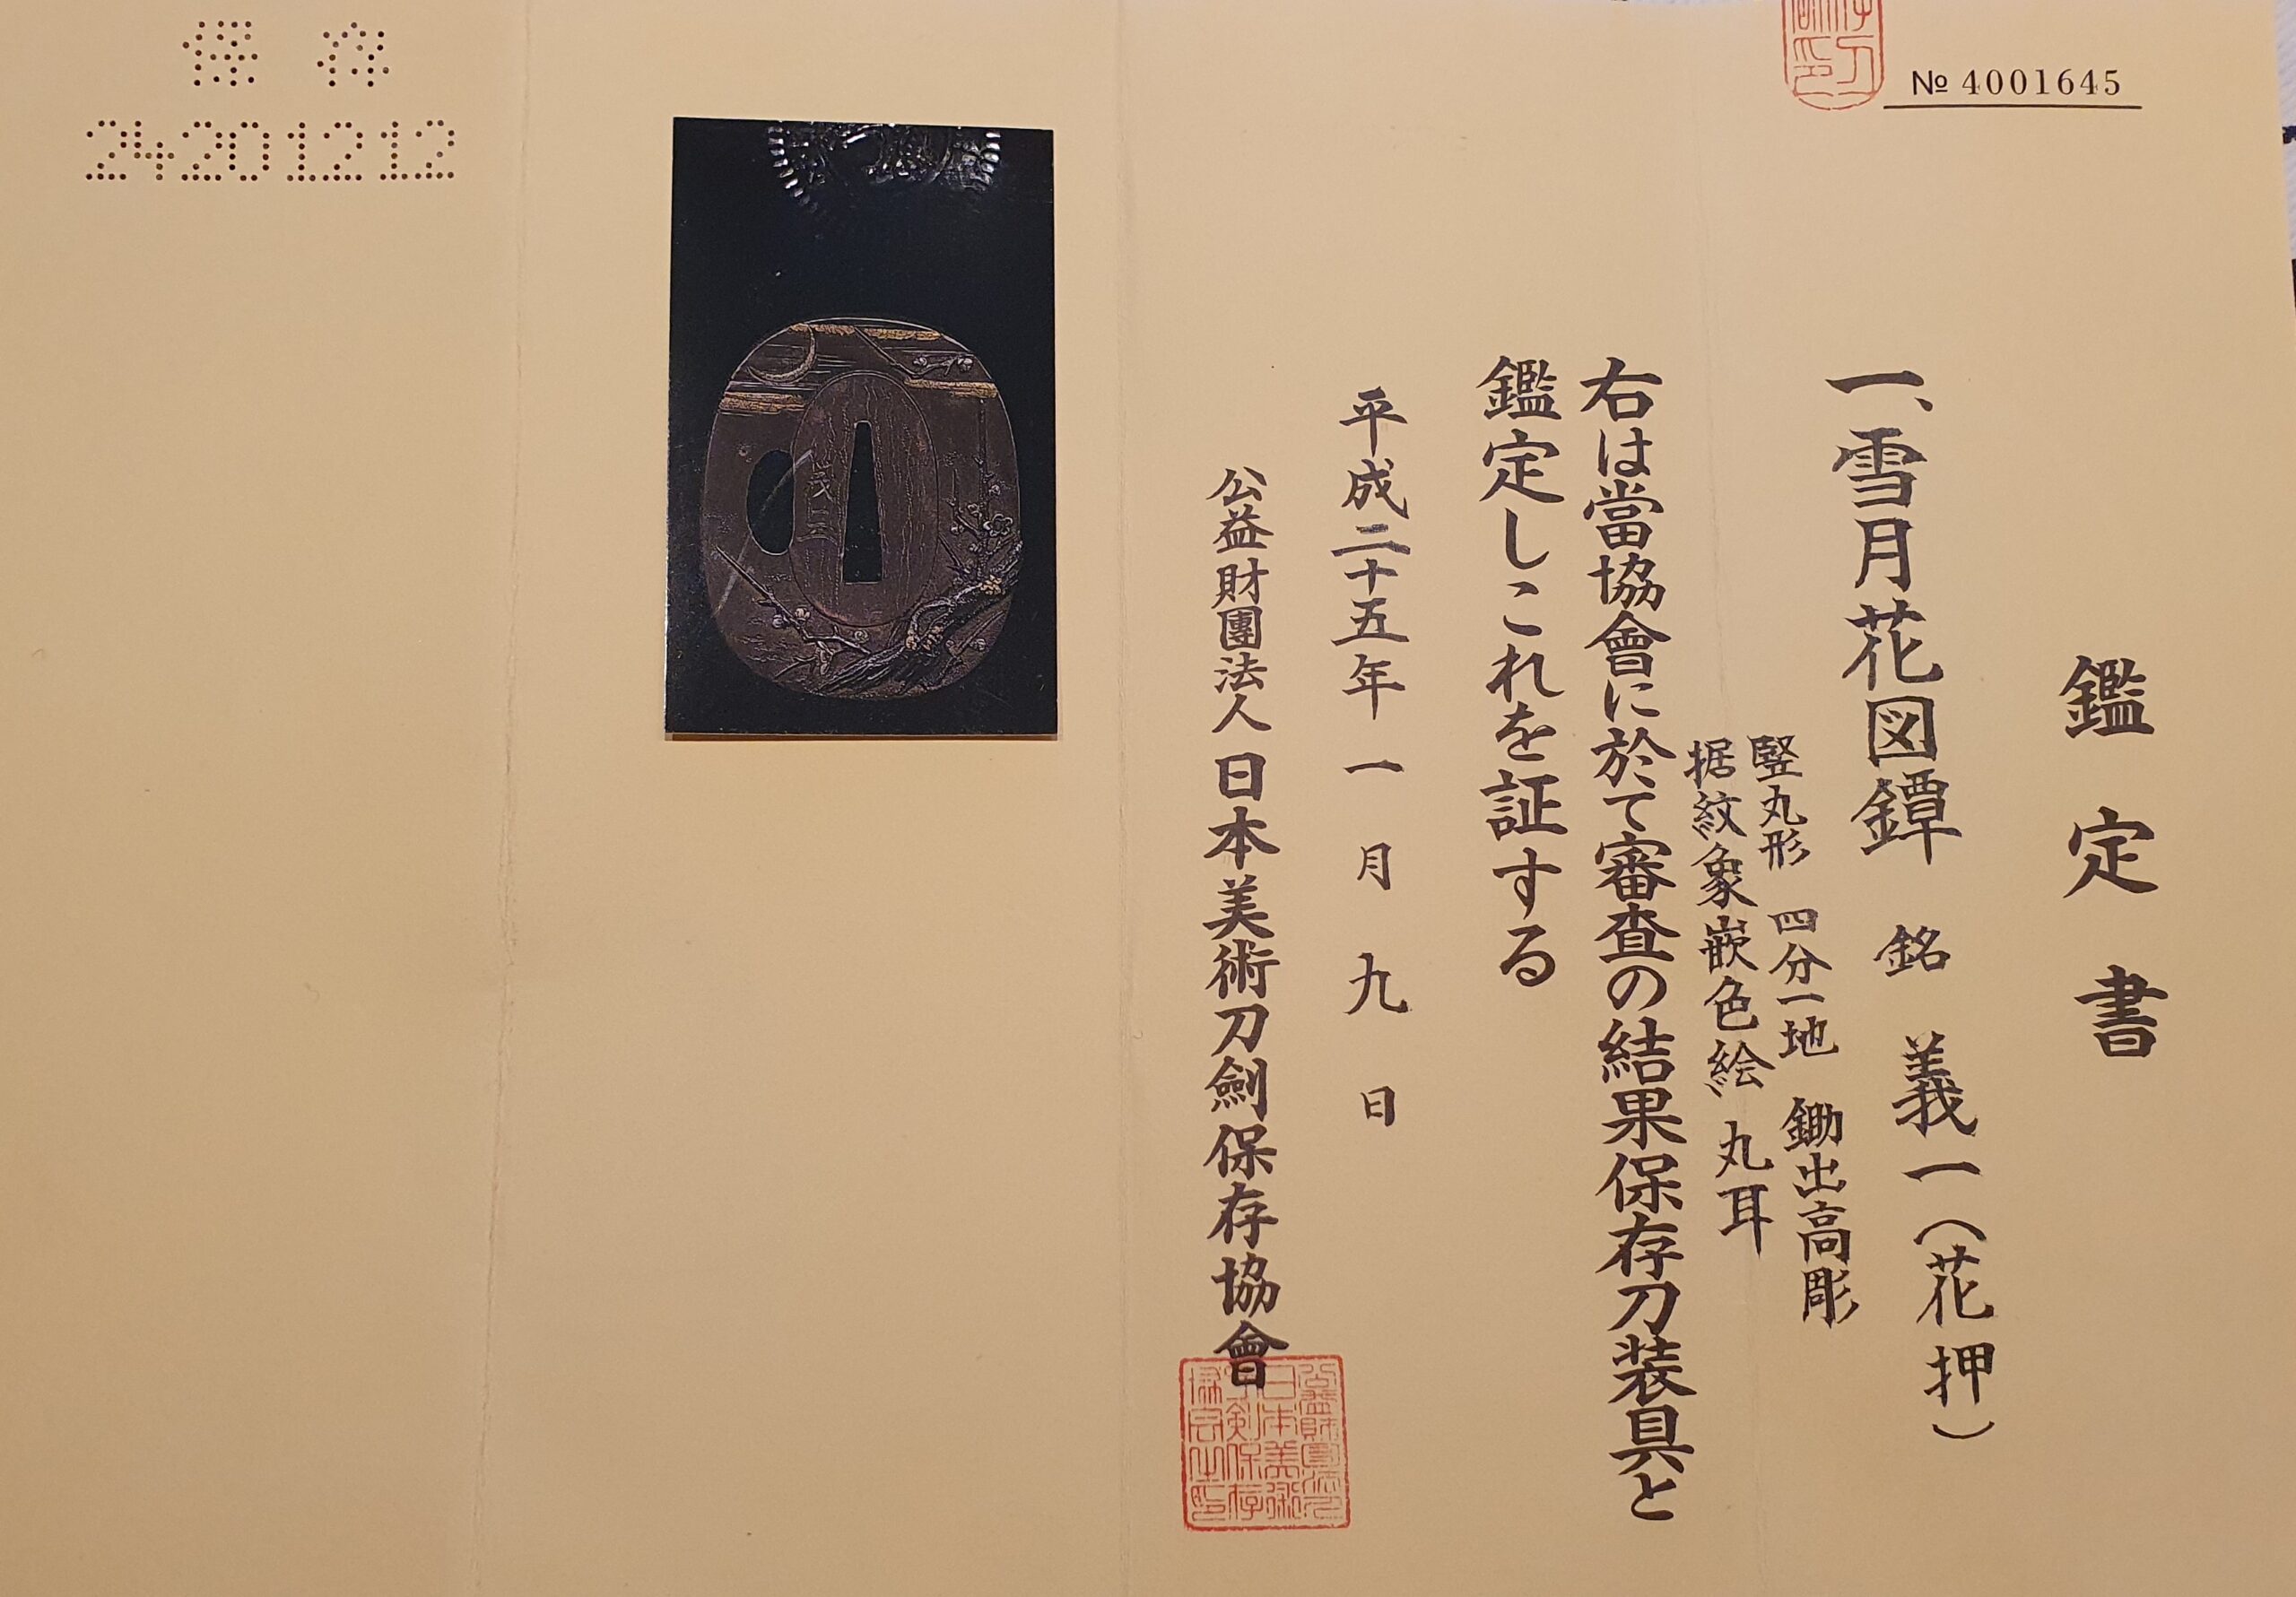 № 4001645
鑑定書
一、雪月花図鐔 銘 義一(花押)
竪丸形 四分一地 鋤出高彫
据紋象嵌色絵 丸耳
右は當協會に於て審査の結果保存刀装具と
鑑定しこれを証する
平成二十五年一月九日
公益財團法人 日本美術刀劍保存協會
保存
24201212